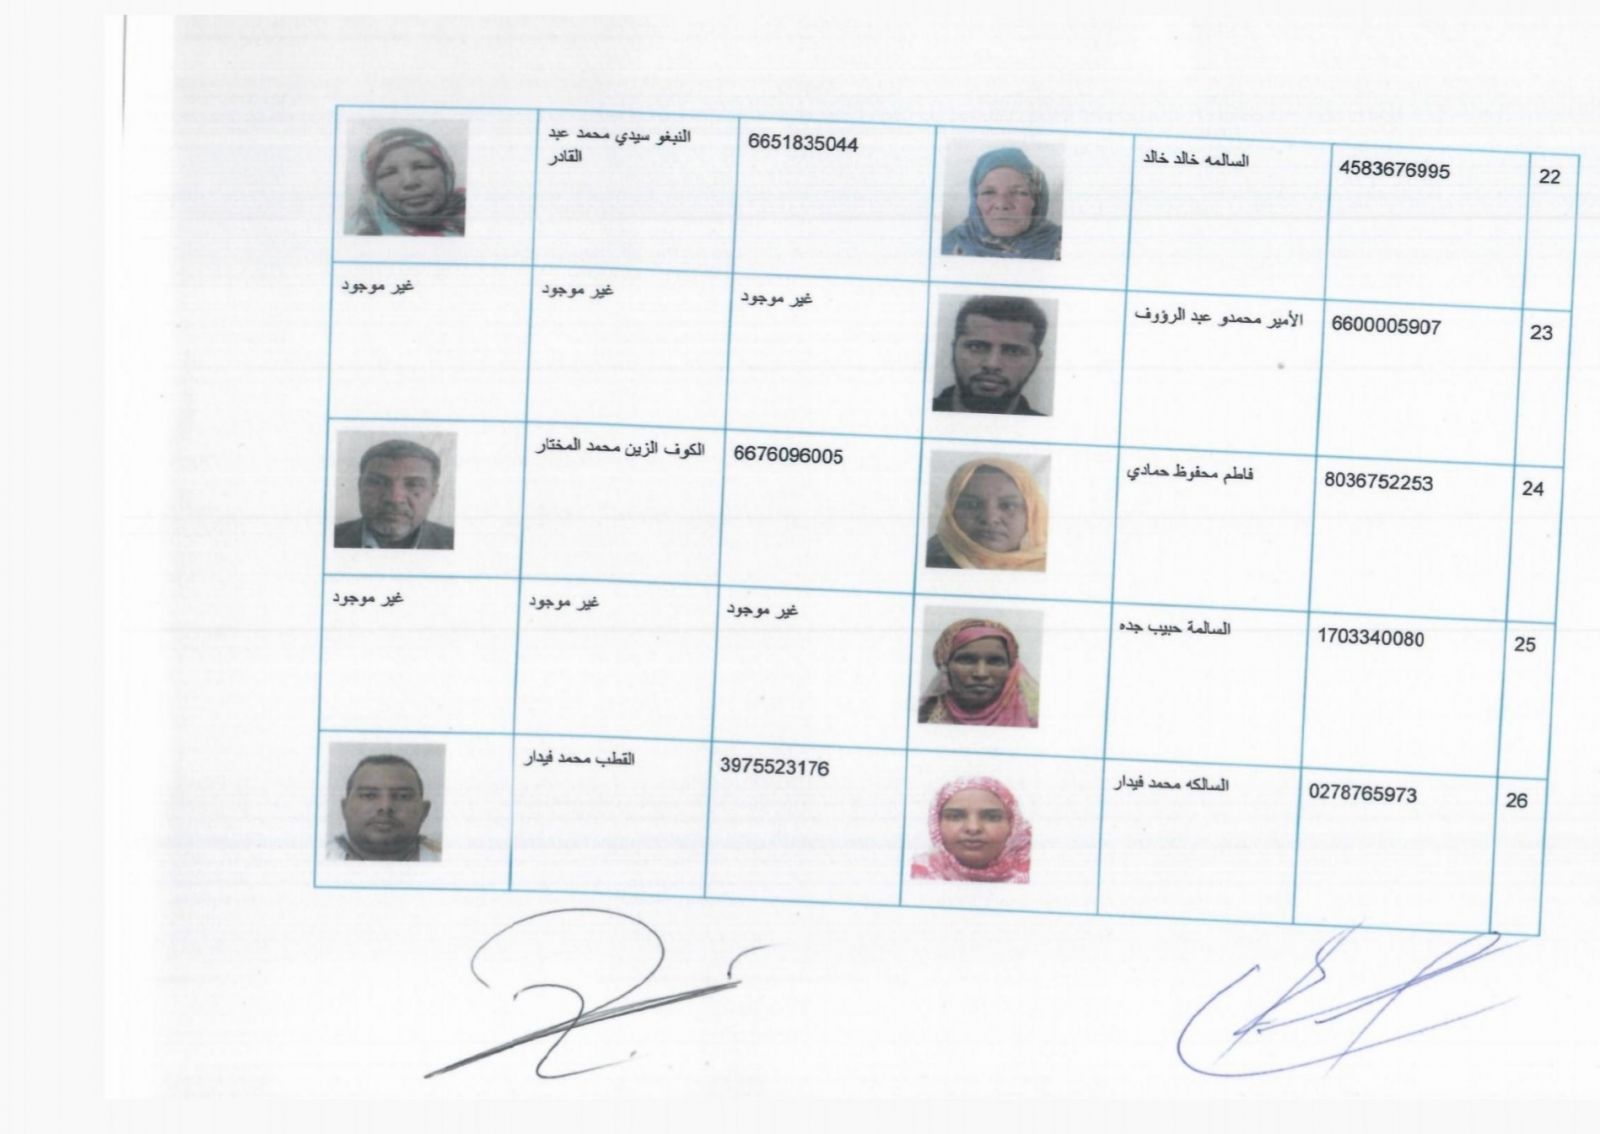 22 4583676995 السالمه خالد خالد 6651835044 النبغو سيدي محمد عبد
القادر
23 6600005907 الأمير محمدو عبد الرؤوف غير موجود غير موجود غير موجود
24 8036752253 فاطم محفوظ حمادي 6676096005 الكوف الزين محمد المختار
25 1703340080 السالمة حبيب جده غير موجود غير موجود غير موجود
26 0278765973 السالكه محمد فيدار 3975523176 القطب محمد فيدار